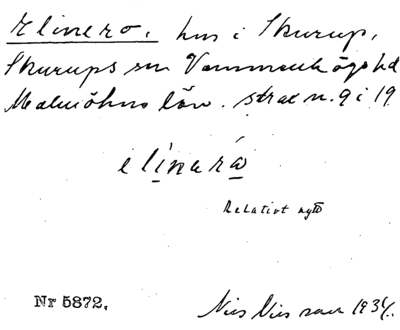 Elinero. hus i Skurup,
Skurups sn Vemmenhögs hd
Malmöhus län. strax n. 9 i 19
elìnará
Relativt nytt
Nr 5872.
Nils Nilsson 1934.